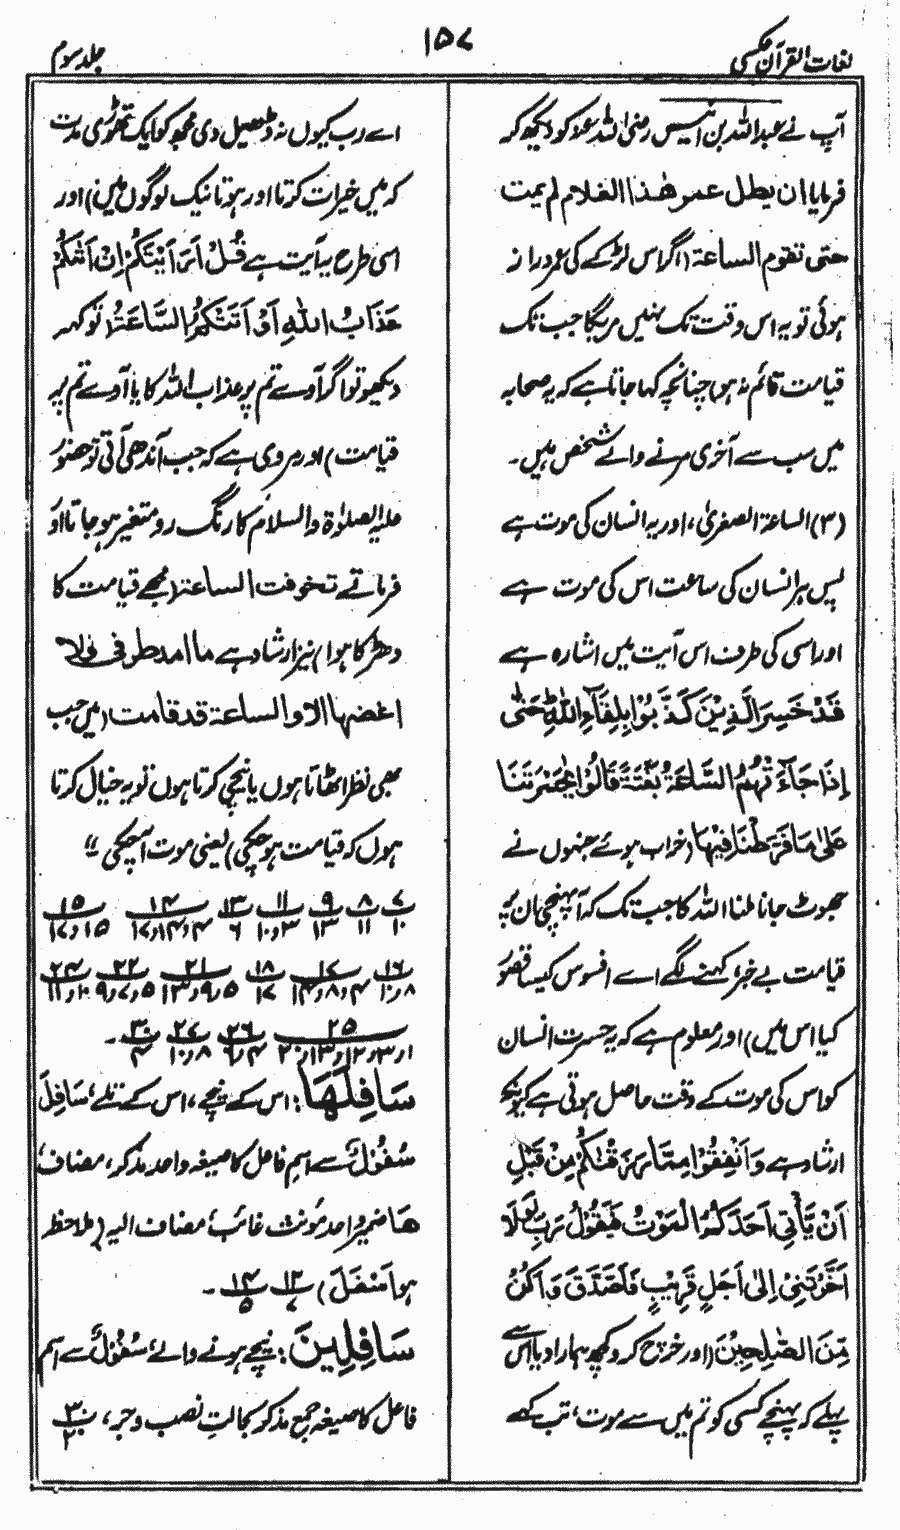 لغات القرآن عکسی
۱۵۷
جلد سوم
آپ نے عبداللہ بن انیس رضی اللہ عنہ کو دیکھ کر
فرمایا ان یطل عمر ھذا الغلام لم یمت
حتی تقوم الساعۃ (اگر اس لڑکے کی عمر دراز
ہوئی تو یہ اس وقت تک نہیں مریگا جب تک
قیامت قائم نہ ہو) چنانچہ کہا جاتا ہے کہ یہ صحابہ
میں سب سے آخری مرنے والے شخص ہیں۔
(۳) الساعۃ الصغریٰ، اور یہ انسان کی موت ہے
پس ہر انسان کی ساعت اس کی موت ہے
اور اسی کی طرف اس آیت میں اشارہ ہے
قَدْ خَسِرَ الَّذِیْنَ کَذَّبُوْا بِلِقَآءِ اللّٰہِ حَتّٰی
اِذَا جَآءَ تْھُمُ السَّاعَۃُ بَغْتَۃً قَالُوْا یٰحَسْرَتَنَا
عَلٰی مَا فَرَّطْنَا فِیْھَا (خراب ہوئے جنہوں نے
جھوٹ جانا ملنا اللہ کا جب تک کہ آ پہنچی ان پر
قیامت بے خبر، کہنے لگے اے افسوس کیسا قصور
کیا اس میں) اور معلوم ہے کہ یہ حسرت انسان
کو اس کی موت کے وقت حاصل ہوتی ہے کیونکہ
ارشاد ہے وَ اَنْفِقُوْا مِمَّا رَزَقْنٰکُمْ مِنْ قَبْلِ
اَنْ یَّأْتِیَ اَحَدَکُمُ الْمَوْتُ فَیَقُوْلُ رَبِّ لَوْلَا
اَخَّرْتَنِیْ اِلٰی اَجَلٍ قَرِیْبٍ فَاَصَّدَّقَ وَ اَکُنْ
مِّنَ الصّٰلِحِیْنَ (اور خرچ کرو کچھ ہمارا دیا اس سے
پہلے کہ پہنچے کسی کو تم میں سے موت، تب کہے
اے رب کیوں نہ ڈھیل دی مجھ کو ایک تھوڑی مدت
کہ میں خیرات کرتا اور ہوتا نیک لوگوں میں) اور
اسی طرح یہ آیت ہے قُلْ اَرَءَیْتَکُمْ اِنْ اَتٰکُمْ
عَذَابُ اللّٰہِ اَوْ اَتَتْکُمُ السَّاعَۃُ (تو کہہ
دیکھو تو اگر آوے تم پر عذاب اللہ کا یا آوے تم پر
قیامت) اور مروی ہے کہ جب آندھی آتی تو حضور
علیہ الصلوٰۃ والسلام کا رنگ رو متغیر ہو جاتا اور
فرماتے تخوفت الساعۃ (مجھے قیامت کا
دھڑکا ہوا) نیز ارشاد ہے ما امد طرفی ولا
اغضہا الا و الساعۃ قد قامت (میں جب
بھی نظر اٹھاتا ہوں یا نیچی کرتا ہوں تو یہ خیال کرتا
ہوں کہ قیامت ہو چکی) یعنی موت آ چکی "
۷ ۸ ۹ ۱۱ ۱۳ ۱۴ ۱۵
۱۰ ۱۱ ۱۳ ۳و۱۰ ۶ ۴و۱۴و۱۷ ۱۵و۱۷
۱۶ ۱۷ ۱۸ ۲۱ ۲۲ ۲۴
۸و۱۰ ۴و۸و۱۴ ۱۷ ۵و۹و۱۳ ۵و۷و۹ ۱۰و۱۱
۲۵ ۲۶ ۲۷ ۳۰۔
۱و۳و۱۲و۱۳و۲۰ ۴و۶ ۸و۱۰ ۴
سَافِلَھَا: اس کے نیچے، اس کے تلے، سَافِلَ
سُفُوْلٌ سے اسم فاعل کا صیغہ واحد مذکر، مضاف،
ھَا ضمیر واحد مؤنث غائب، مضاف الیہ (ملاحظہ
ہو اَسْفَلَ) ۱۲ ۱۴۔
۷ ۵
سَافِلِیْنَ: نیچے ہونے والے، سُفُوْلٌ سے اسم
فاعل کا صیغہ جمع مذکر بحالت نصب و جر، ۳۰
۲۰